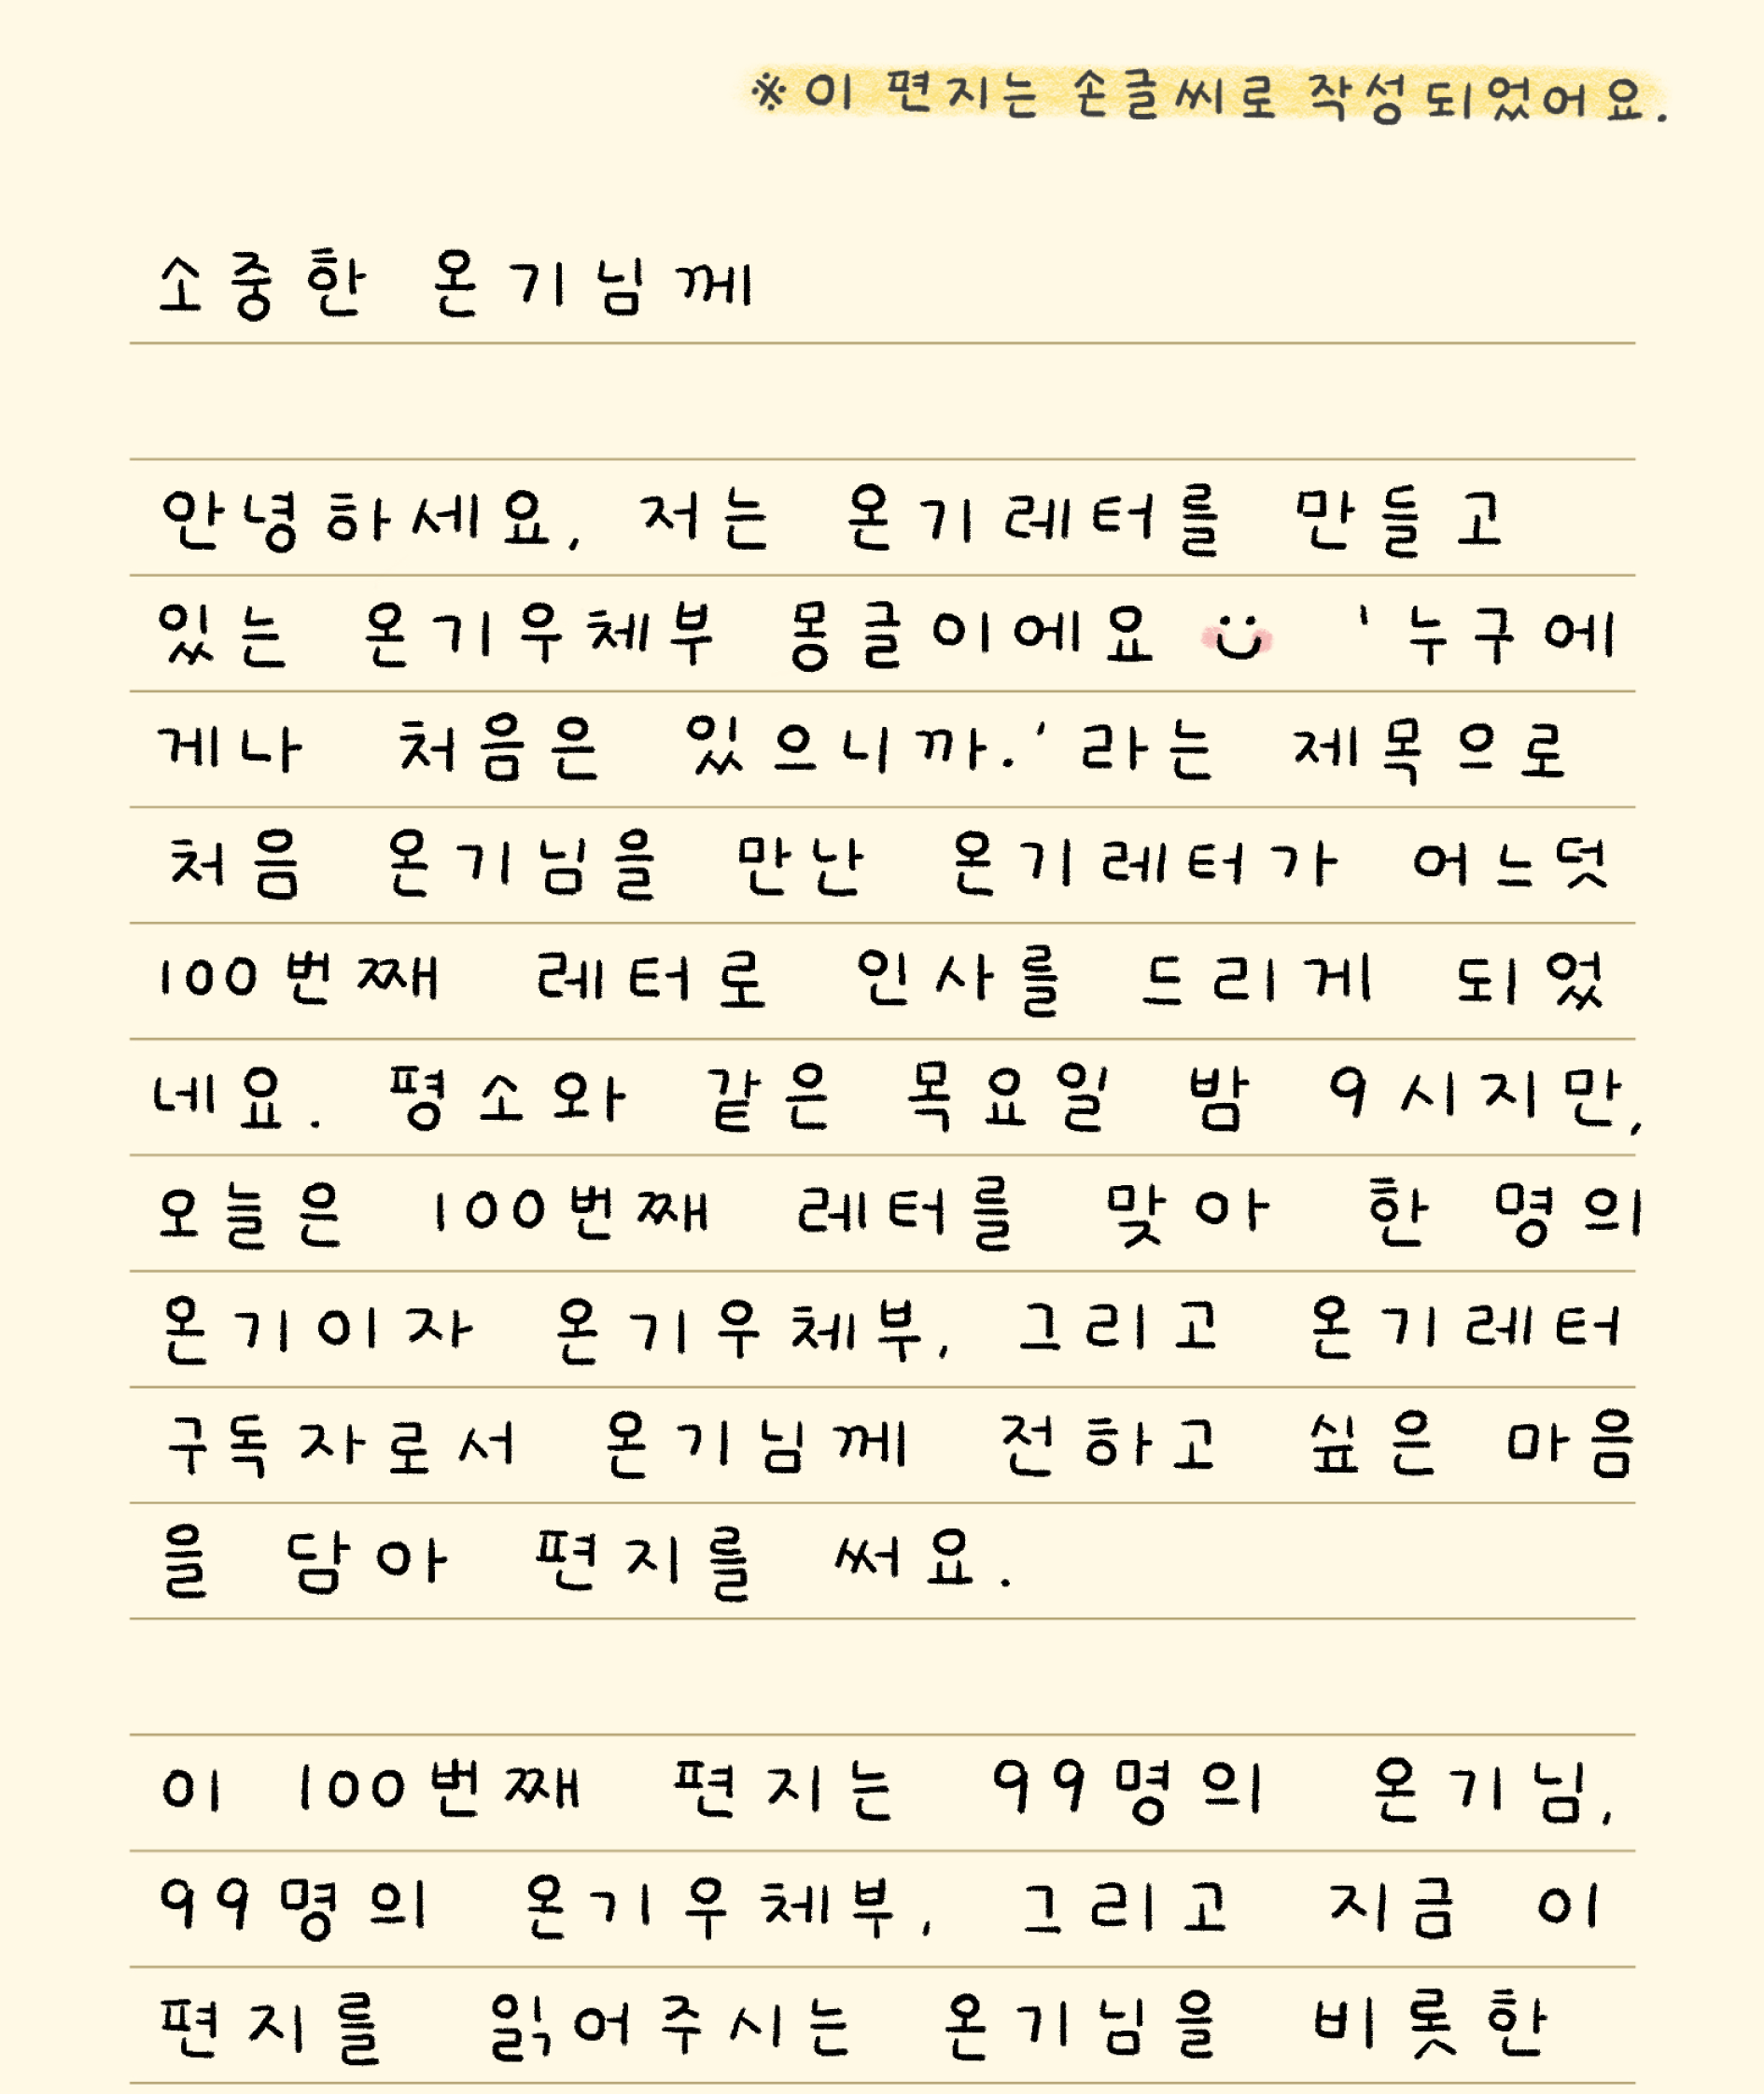 ※이 편지는 손글씨로 작성되었어요.
소중한 온기님께
안녕하세요, 저는 온기레터를 만들고
있는 온기우체부 몽글이에요 '누구에
게나 처음은 있으니까.'라는 제목으로
처음 온기님을 만난 온기레터가 어느덧
100번째 레터로 인사를 드리게 되었
네요. 평소와 같은 목요일 밤 9시지만,
오늘은 100번째 레터를 맞아 한 명의
온기이자 온기우체부, 그리고 온기레터
구독자로서 온기님께 전하고 싶은 마음
을 담아 편지를 써요.
이 100번째 편지는 99명의 온기님,
99명의 온기우체부, 그리고 지금 이
편지를 읽어주시는 온기님을 비롯한